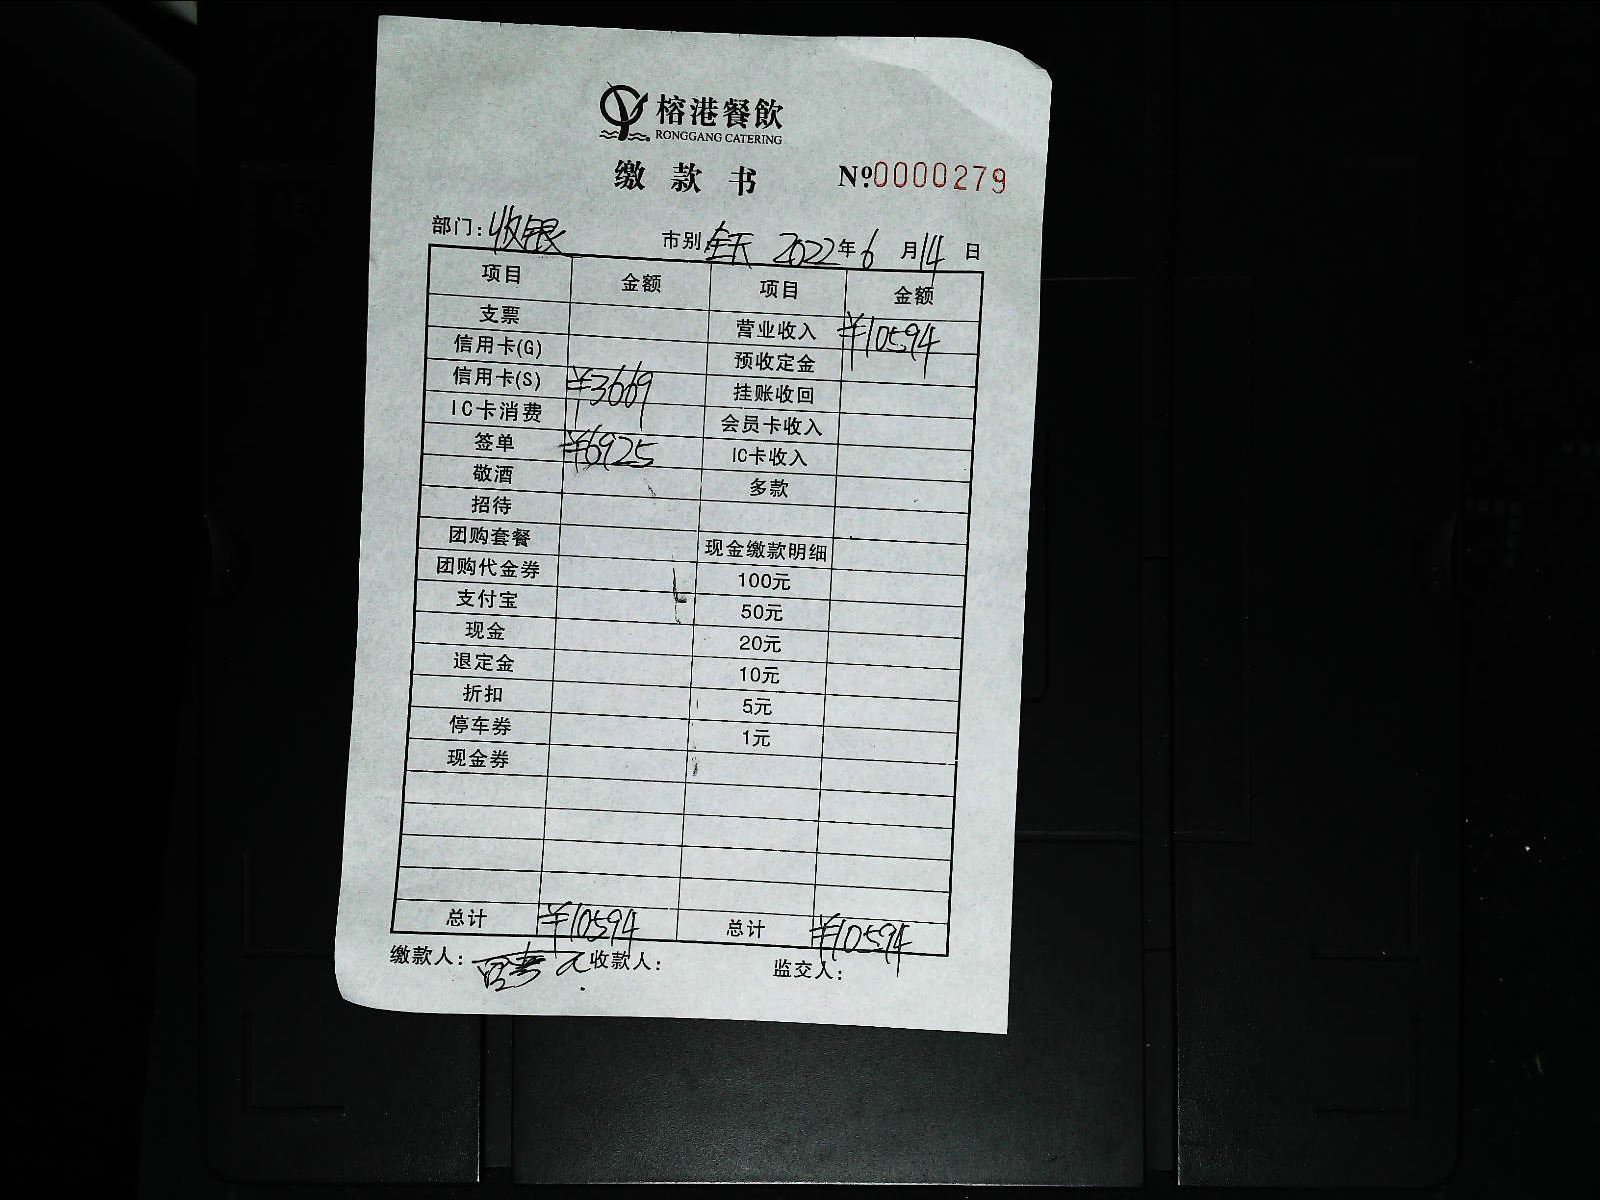 榕港餐飲
RONGGANG CATERING
缴款书 №0000279
部门：收银 市别 全天 2022年6月14日
项目 金额 项目 金额
支票 营业收入 ¥10594
信用卡(G) 预收定金
信用卡(S) ¥3669 挂账收回
IC卡消费 会员卡收入
签单 ¥6925 IC卡收入
敬酒 多款
招待
团购套餐 现金缴款明细
团购代金券 100元
支付宝 50元
现金 20元
退定金 10元
折扣 5元
停车券 1元
现金券
总计 ¥10594 总计 ¥10594
缴款人： 收款人： 监交人：